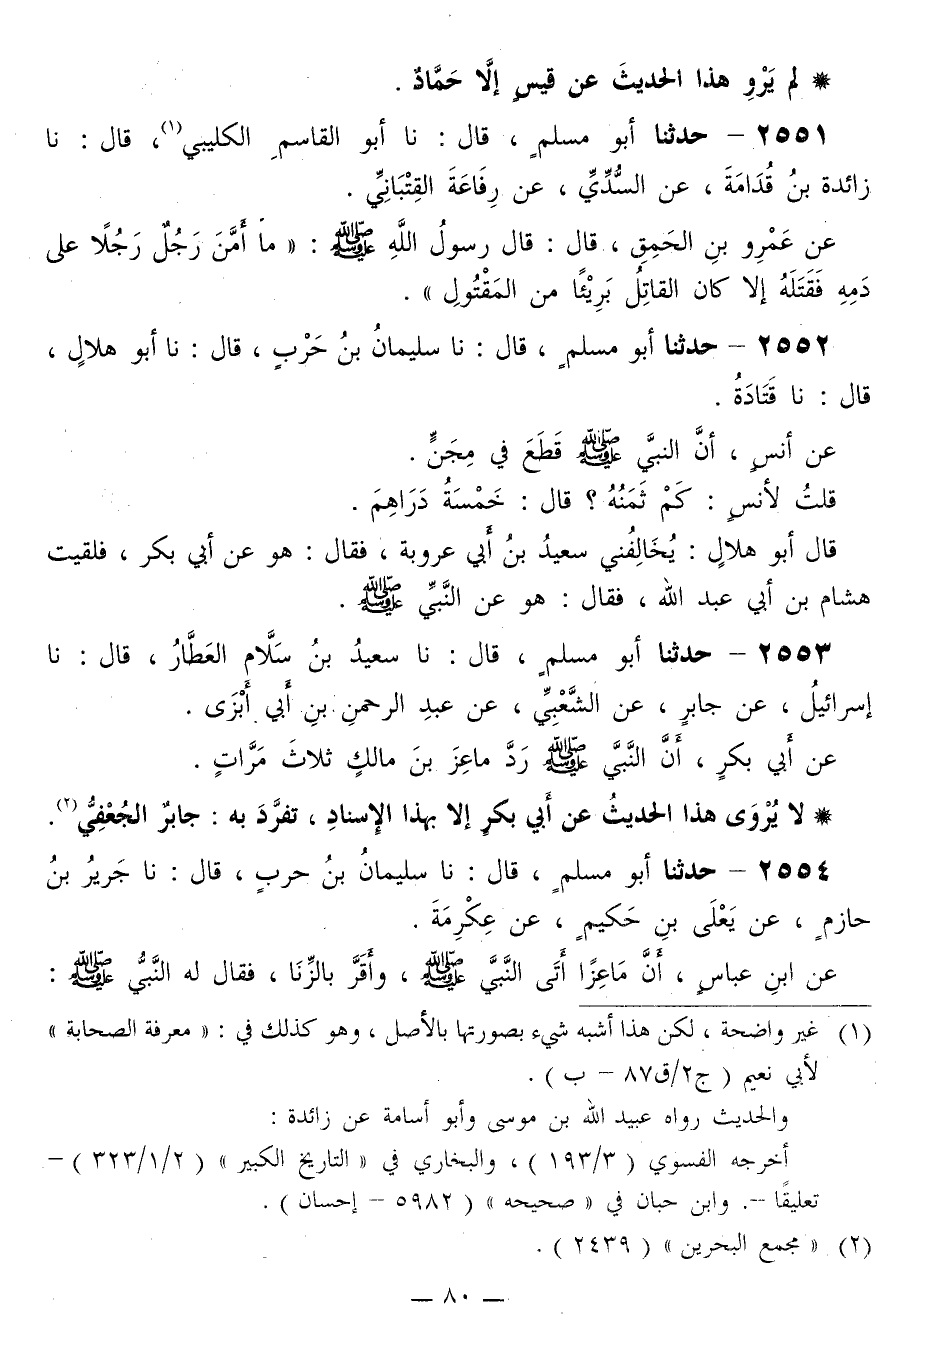 * لم يَرْوِ هذا الحديثَ عن قيسٍ إلَّا حَمَّادٌ .
٢٥٥١ – حدثنا أبو مسلمٍ ، قال : نا أبو القاسمِ الكليبي(١)، قال : نا
زائدة بنُ قُدَامَةَ ، عن السُّدِّيِّ ، عن رِفَاعَةَ القِتْبَانِيِّ .
عن عَمْرِو بنِ الحَمِقِ ، قال : قال رسولُ اللَّهِ ﷺ : « ما أَمَّنَ رَجُلٌ رَجُلًا على
دَمِهِ فَقَتَلَهُ إلا كان القاتِلُ بَرِيْئًا من المَقْتُولِ » .
٢٥٥٢ – حدثنا أبو مسلمٍ ، قال : نا سليمانُ بنُ حَرْبٍ ، قال : نا أبو هلالٍ ،
قال : نا قَتَادَةُ .
عن أنسٍ ، أنَّ النبيَّ ﷺ قَطَعَ في مِجَنٍّ .
قلتُ لأنسٍ : كَمْ ثَمَنُهُ ؟ قال : خَمْسَةُ دَرَاهِمَ .
قال أبو هلالٍ : يُخَالِفُني سعيدُ بنُ أَبي عروبة ، فقال : هو عن أبي بكر ، فلقيت
هشام بن أبي عبد الله ، فقال : هو عن النَّبِّي ﷺ .
٢٥٥٣ – حدثنا أبو مسلمٍ ، قال : نا سعيدُ بنُ سَلَّام العَطَّارُ ، قال : نا
إسرائيلُ ، عن جابرٍ ، عن الشَّعْبِّي ، عن عبدِ الرحمنِ بنِ أَبي أَبْزَى .
عن أَبي بكرٍ ، أَنَّ النَّبَّي ﷺ رَدَّ ماعِزَ بنَ مالكٍ ثلاثَ مَرَّاتٍ .
* لا يُرْوَى هذا الحديثُ عن أَبي بكرٍ إلا بهذا الإسنادِ ، تفرَّدَ به : جابرٌ الجُعْفِيُّ(٢).
٢٥٥٤ – حدثنا أبو مسلمٍ ، قال : نا سليمانُ بنُ حربٍ ، قال : نا جَريرُ بنُ
حازمٍ ، عن يَعْلَى بنِ حَكيمٍ ، عن عِكْرِمَةَ .
عن ابنِ عباسٍ ، أَنَّ مَاعِزًا أَتَى النَّبَّي ﷺ ، وأَقَرَّ بالزِّنَا ، فقال له النَّبُّي ﷺ :
(١) غير واضحة ، لكن هذا أشبه شيء بصورتها بالأصل ، وهو كذلك في : « معرفة الصحابة »
لأبي نعيم ( ج٢/ق٨٧ – ب ) .
والحديث رواه عبيد الله بن موسى وأبو أسامة عن زائدة :
أخرجه الفسوي ( ١٩٣/٣ ) ، والبخاري في « التاريخ الكبير » ( ٣٢٣/١/٢ ) –
تعليقًا –. وابن حبان في « صحيحه » ( ٥٩٨٢ – إحسان ) .
(٢) « مجمع البحرين » ( ٢٤٣٩ ) .
— ٨٠ —